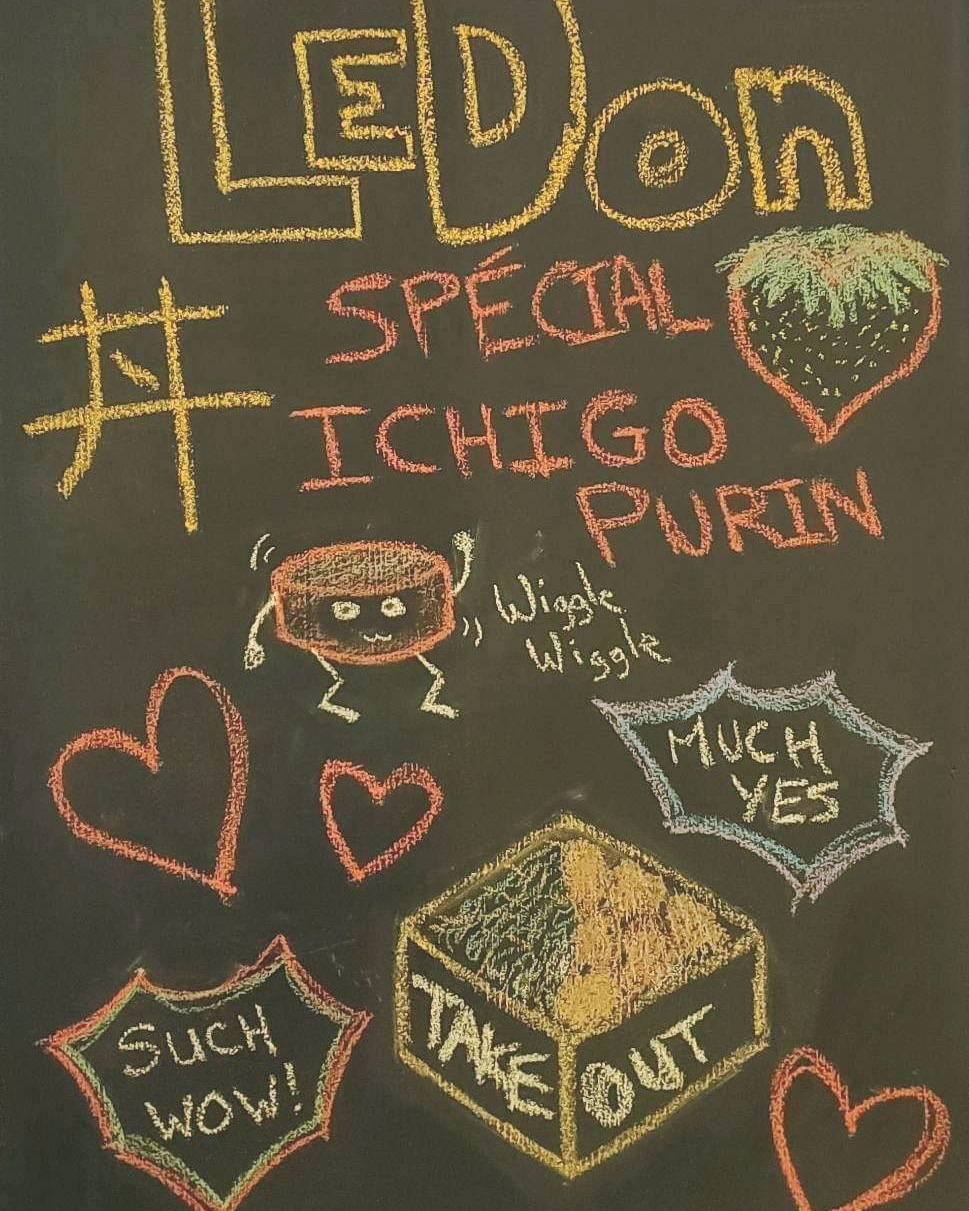 LEDon
丼
SPÉCIAL
ICHIGO
PURIN
Wiggle
Wiggle
MUCH
YES
TAKE OUT
SUCH
WOW!